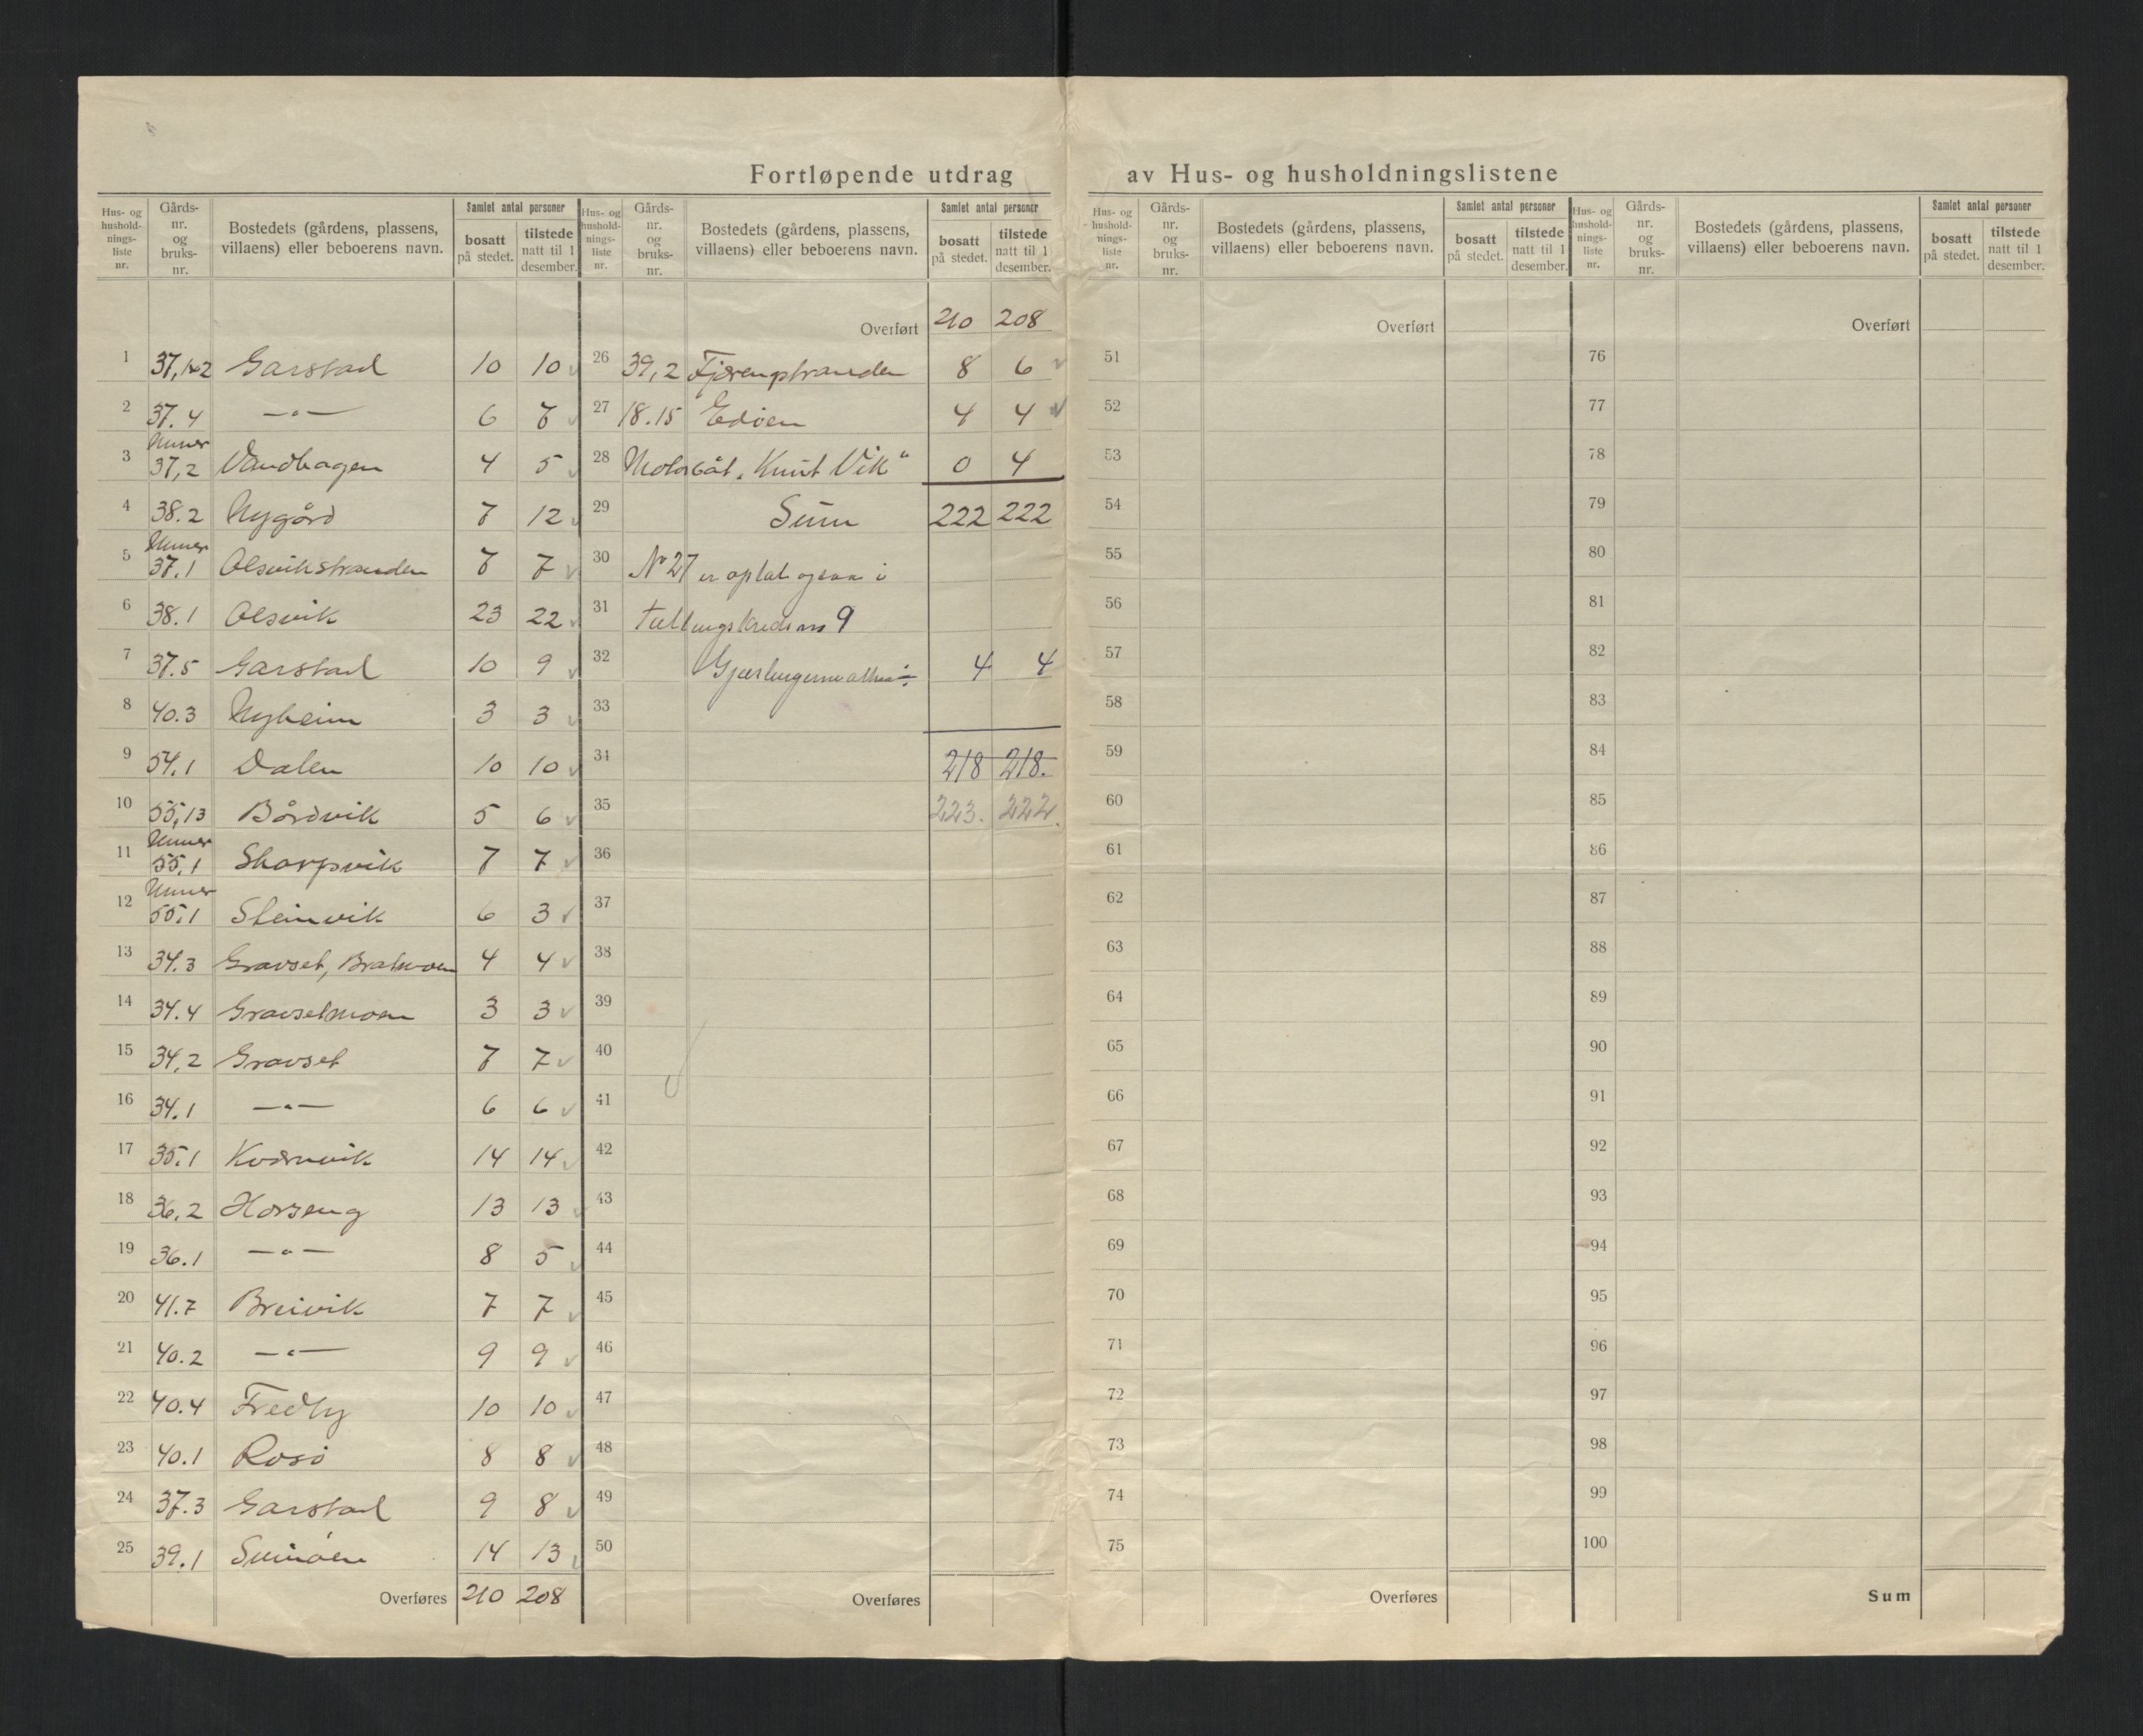 Fortløpende utdrag av Hus- og husholdningslistene
Hus- og hushold- nings- liste nr. Gårds- nr. og bruks- nr. Bostedets (gårdens, plassens, villaens) eller beboerens navn. Samlet antal personer bosatt på stedet. tilstede natt til 1 desember.
1 37,1+2 Garstad 10 10
2 37.4 —"— 6 7
3 Under 37,2 Vandhagen 4 5
4 38.2 Nygård 7 12
5 Under 37.1 Olsvikstranden 7 7
6 38.1 Olsvik 23 22
7 37.5 Garstad 10 9
8 40.3 Nyheim 3 3
9 54.1 Dalen 10 10
10 55,13 Bårdvik 5 6
11 Under 55,1 Skarpsvik 7 7
12 Under 55,1 Steinvik 6 3
13 34.3 Gravset, Bratmoen 4 4
14 34.4 Gravsetmoen 3 3
15 34,2 Gravset 7 7
16 34.1 —"— 6 6
17 35.1 Kvernvik 14 14
18 36.2 Horseng 13 13
19 36.1 —"— 8 5
20 41.7 Breivik 7 7
21 40.2 —"— 9 9
22 40.4 Fredly 10 10
23 40.1 Rosø 8 8
24 37.3 Garstad 9 8
25 39.1 14 13
Overføres 210 208
Hus- og hushold- nings- liste nr. Gårds- nr. og bruks- nr. Bostedets (gårdens, plassens, villaens) eller beboerens navn. Samlet antal personer bosatt på stedet. tilstede natt til 1 desember.
Overført 210 208
26 39,2 8 6
27 18.15 Edøen 4 4
28 Motorbåt „Knut Vik" 0 4
29 Sum 222 222
30 No 27 er optat ogsaa i
31 tællingskreds no 9
32 4 4
33
34 218 218.
35 223. 222.
36
37
38
39
40
41
42
43
44
45
46
47
48
49
50
Overføres
Hus- og hushold- nings- liste nr. Gårds- nr. og bruks- nr. Bostedets (gårdens, plassens, villaens) eller beboerens navn. Samlet antal personer bosatt på stedet. tilstede natt til 1 desember.
Overført
51
52
53
54
55
56
57
58
59
60
61
62
63
64
65
66
67
68
69
70
71
72
73
74
75
Overføres
Hus- og hushold- nings- liste nr. Gårds- nr. og bruks- nr. Bostedets (gårdens, plassens, villaens) eller beboerens navn. Samlet antal personer bosatt på stedet. tilstede natt til 1 desember.
Overført
76
77
78
79
80
81
82
83
84
85
86
87
88
89
90
91
92
93
94
95
96
97
98
99
100
Sum